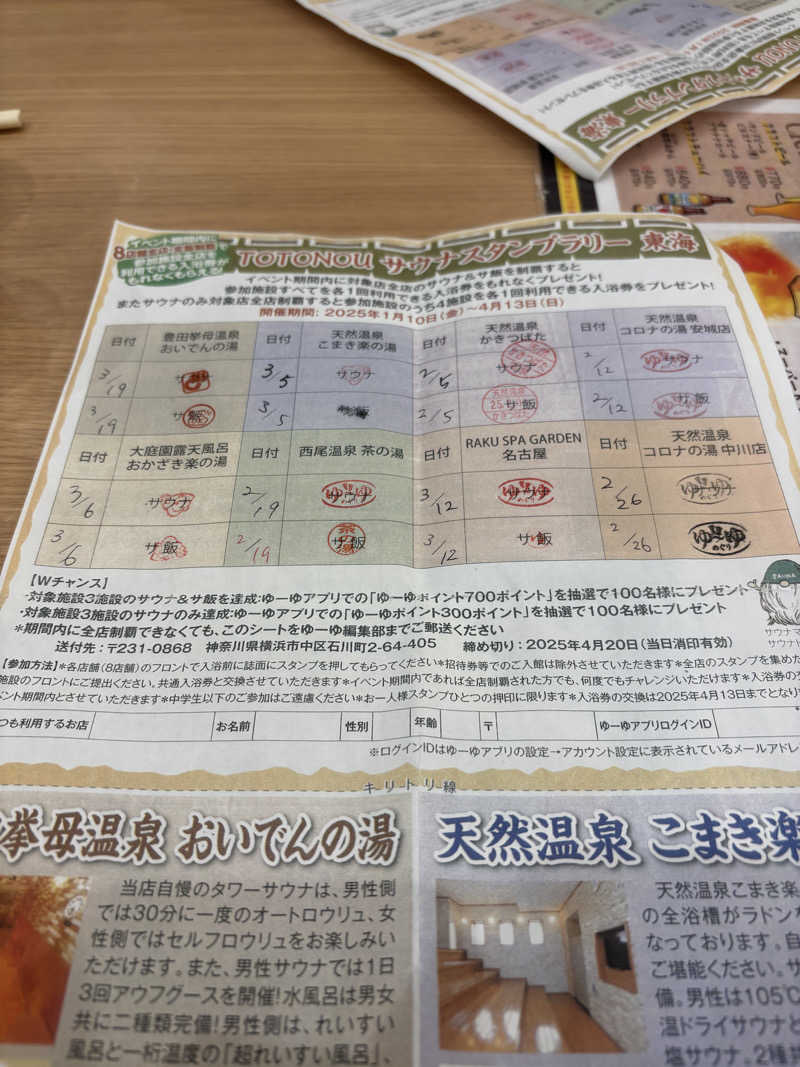 TOTONOU サウナスタンプラリー 東海
イベント期間内に
8店舗全店(全施設)制覇で
参加施設全てを
利用できる入浴券が
もれなくもらえる!
TOTONOU サウナスタンプラリー 東海
イベント期間内に対象店全店のサウナ&サ飯を制覇すると
参加施設すべてを各1回利用できる入浴券をもれなくプレゼント!
またサウナのみ対象店全店制覇すると参加施設のうち4施設を各1回利用できる入浴券をプレゼント!
開催期間: 2025年1月10日(金)~4月13日(日)
日付 豊田挙母温泉 おいでんの湯 日付 天然温泉 こまき楽の湯 日付 天然温泉 かきつばた 日付 天然温泉 コロナの湯 安城店
3/19 サウナ 3/5 サウナ 2/5 サウナ 2/12 サウナ
3/19 サ飯 3/5 サ飯 2/5 サ飯 2/12 サ飯
日付 大庭園露天風呂 おかざき楽の湯 日付 西尾温泉 茶の湯 日付 RAKU SPA GARDEN 名古屋 日付 天然温泉 コロナの湯 中川店
3/6 サウナ 2/19 サウナ 3/12 サウナ 2/26
3/6 サ飯 2/19 サ飯 3/12 サ飯 2/26
【Wチャンス】
・対象施設3施設のサウナ&サ飯を達成:ゆーゆアプリでの「ゆーゆポイント700ポイント」を抽選で100名様にプレゼント
・対象施設3施設のサウナのみ達成:ゆーゆアプリでの「ゆーゆポイント300ポイント」を抽選で100名様にプレゼント
＊期間内に全店制覇できなくても、このシートをゆーゆ編集部までご郵送ください
送付先:〒231-0868 神奈川県横浜市中区石川町2-64-405 締め切り:2025年4月20日(当日消印有効)
【参加方法】＊各店舗(8店舗)のフロントで入浴前に誌面にスタンプを押してもらってください＊招待券等でのご入館は除外させていただきます＊全店のスタンプを集めた
施設のフロントにご提出ください。共通入浴券と交換させていただきます＊イベント期間内であれば全店制覇された方でも、何度でもチャレンジいただけます＊入浴券の交
ベント期間内とさせていただきます＊中学生以下のご参加はご遠慮ください＊お一人様スタンプひとつの押印に限ります＊入浴券の交換は2025年4月13日までとなり
つも利用するお店 お名前 性別 年齢 〒 ゆーゆアプリログインID
※ログインIDはゆーゆアプリの設定→アカウント設定に表示されているメールアドレ
キリトリ線
挙母温泉 おいでんの湯
当店自慢のタワーサウナは、男性側
では30分に一度のオートロウリュ、女
性側ではセルフロウリュをお楽しみい
ただけます。また、男性サウナでは1日
3回アウフグースを開催!水風呂は男女
共に二種類完備!男性側は、れいすい
風呂と一桁温度の「超れいすい風呂」、
天然温泉 こまき楽
天然温泉こまき楽
の全浴槽がラドン
なっております。自
ご堪能ください。サ
備。男性は105℃
温ドライサウナと
塩サウナ。2種